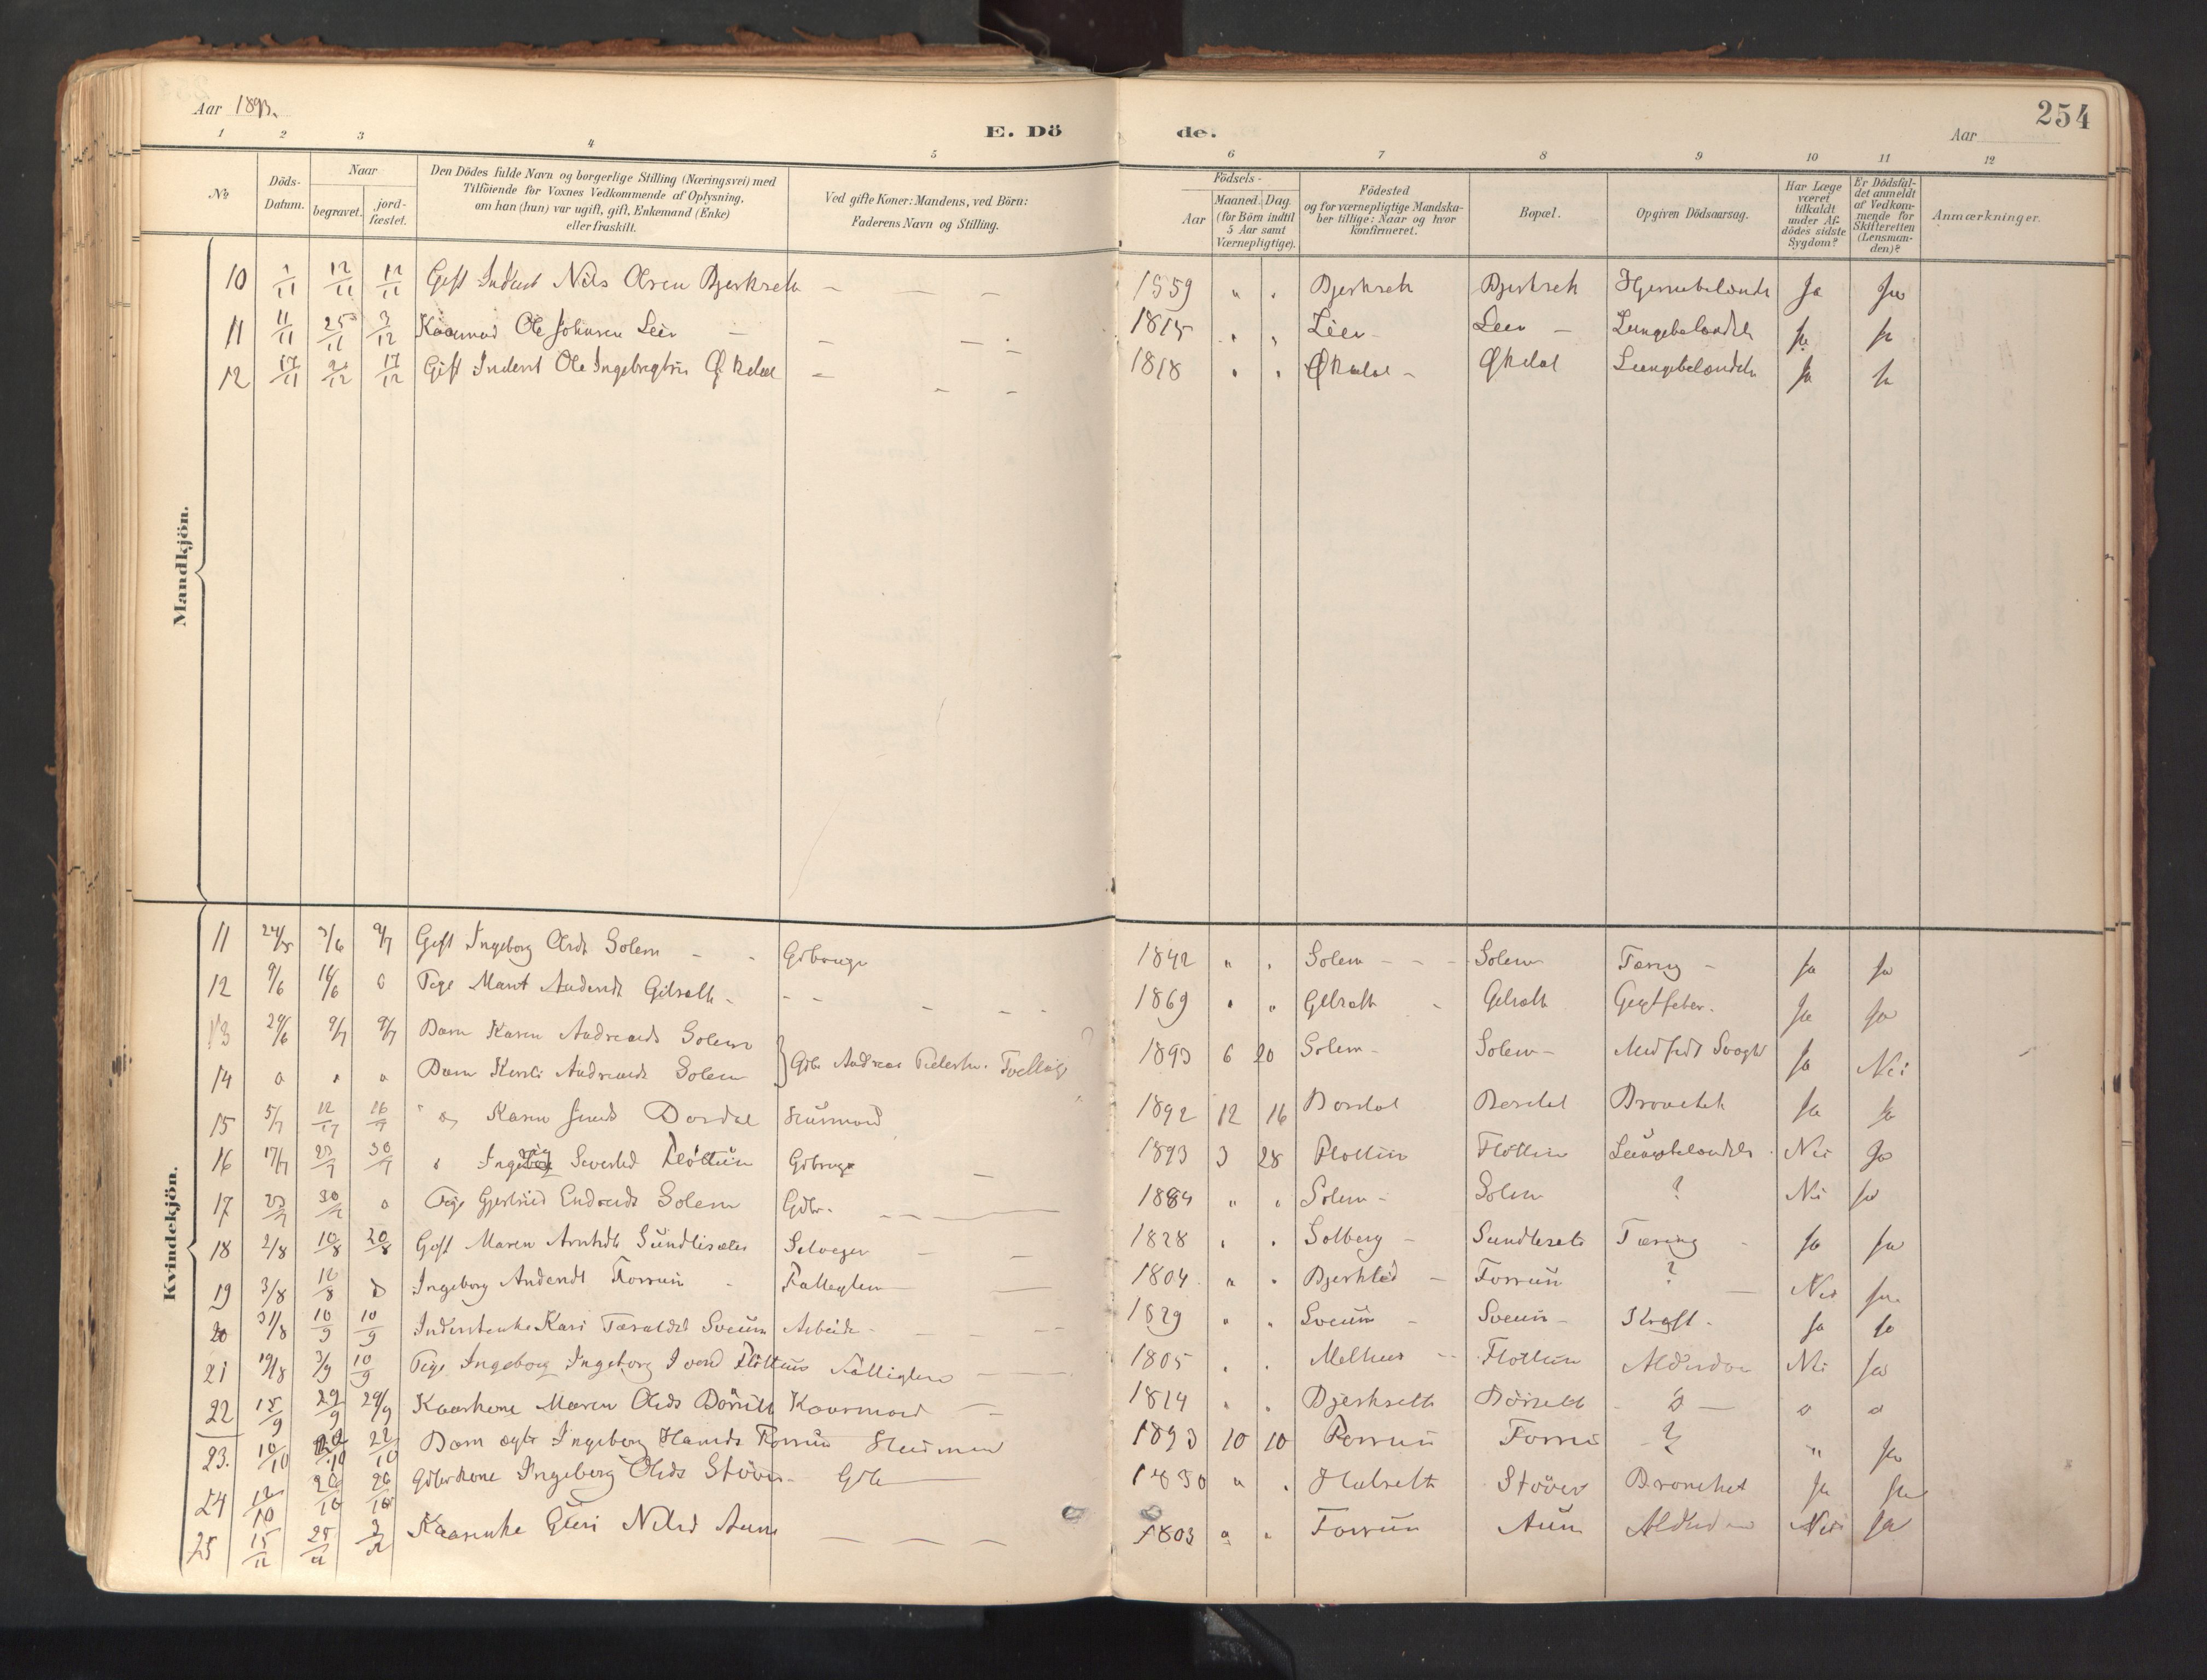 Aar 1893.
E. Döde.
254
Aar
1 2 3 4 5 6 7 8 9 10 11 12
No
Döds-Datum.
Naar
begravet.
jord-fæstet.
Den Dödes fulde Navn og borgerlige Stilling (Næringsvei) med
Tilföiende for Voxnes Vedkommende af Oplysning,
om han (hun) var ugift, gift, Enkemand (Enke)
eller fraskilt.
Ved gifte Koner: Mandens, ved Börn:
Faderens Navn og Stilling.
Födsels-
Aar
Maaned. Dag.
(for Börn indtil
5 Aar samt
Værnepligtige).
Födested
og for værnepligtige Mandska-
ber tillige: Naar og hvor
konfirmeret.
Bopæl.
Opgiven Dödsaarsag.
Har Læge
været
tilkaldt
under Af-
dödes sidste
Sygdom?
Er Dödsfal-
det anmeldt
af Vedkom-
mende for
Skifteretten
(Lensman-
den)?
Anmærkninger.
Mandkjön.
10 12/11 12/11 Gift Inderst Nils Olsen Bjerkseth - - - 1859 " " Bjerkseth Bjerkseth Hjernebetændelse Ja Ja
11 11/11 25/11 3/12 Kaarmand Ole Johnsen Leer - 1815 " " Leer Leer Lungebetændelse Ja Ja
12 17/11 17/12 Gift Inderst Ole Ingebrigtsen Økdal - 1818 " " Økdal - Økdal Lungebetændelse Ja Ja
Kvindekjön.
11 24/5 3/6 9/7 Gift Ingeborg Olsdt Solem Gdbruger 1842 " " Solem Solem Tæring Ja Ja
12 9/6 16/6 Pige Marit Andersdt Gilseth 1869 " " Gilseth Gilseth Gigtfeber. Ja Ja
13 29/6 9/7 9/7 Barn Karen Andreasdt Solem
14 Barn Andreasdt Solem } Gdbr Andreas Tvilling 1893 6 20 Solem Solem Medfödt Svaghed Ja Nei
15 5/7 12/7 16/7 Karen Dordal Husmand 1892 12 16 Dordal Dordal Bronchit Ja Ja
16 17/7 23/7 30/7 Ingeborg Sivertsd Flöttum Gdbruger 1893 3 28 Flöttum Flöttum Lungebetændelse Nei Ja
17 23/7 30/7 Pige Gjertrud Endresdt Solem Gdbr. 1884 " " Solem Solem ? Nei Ja
18 2/8 10/8 20/8 Gift Maren Arntsdt Sundliseter Selveger 1828 " " Solberg Sundliseter Tæring Ja Ja
19 3/8 12/8 Ingeborg Andersdt Forrun Fattiglem 1804 " " Forrun ? Nei Ja
20 31/8 10/9 10/9 Inderstenke Kari Sveum Arbeider 1829 " " Sveum Sveum Kræft Ja Ja
21 19/8 3/9 10/9 Pige Ingeborg Ingeborg Iversd Flöttum Fattiglem 1805 " " Melhus Flöttum Alderdom Nei Ja
22 15/9 29/9 29/9 Kaarkone Maren Olsds Kaarmand 1814 " " Bjerkseth
23. 10/10 22/10 22/10 Barn ægte Ingeborg Hansds Forrun Husmand 1893 10 10 Forrun Forrun ? " Ja
24 12/10 26/10 26/10 Gdbrkone Ingeborg Olsds Støver Gdbr 1830 " " Halseth Støver Bronchet Ja Ja
25 15/11 25/11 Kaarenke Guri Nilsd Aune 1803 " " Forrun Aune Alderdom Nei Ja